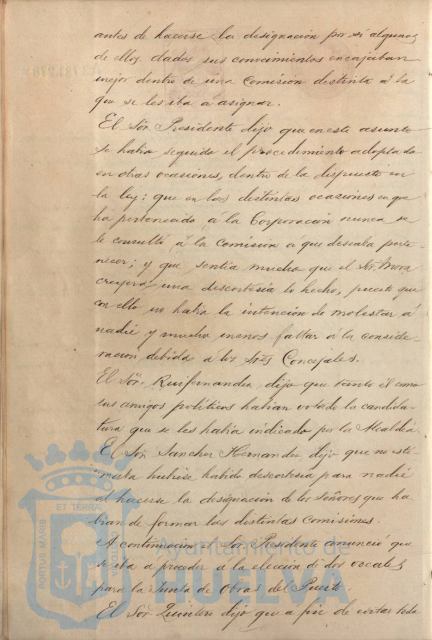 antes de hacerse la designación por si algunos
de ellos dados sus conocimientos encajaban
mejor dentro de una Comisión distinta á la
que se les iba a asignar.
El Sor. Presidente dijo que en este asunto
se habia seguido el procedimiento adoptado
en otras ocasiones, dentro de lo dispuesto en
la ley: que en las distintas ocasiones en que
ha pertenecido á la Corporación nunca se
le consultó á la Comisión a que deseaba perte-
necer; y que sentia mucho que el Sr. Mora
creyera una descortesia lo hecho, puesto que
con ello no habia la intención de molestar á
nadie y mucho menos faltar á la conside-
ración debida a los Sres Concejales.
El Sor. Ruifernandez dijo que tanto él como
sus amigos politicos habian votado la candida-
tura que se les habia indicado por la Alcaldia
El Sor Sanchez Hernandez dijo que no esti-
maba hubiese habido descortesia para nadie
al hacerse la designación de los señores que ha
bian de formar las distintas comisiones.
A continuación el Sor Presidente anunció que
se iba a proceder á la elección de dos vocales
para la Junta de Obras del Puerto
El Sor Quintero dijo que a fin de evitar toda
PORTUS MARIS ET TERRAE
Ayuntamiento de
HUELVA